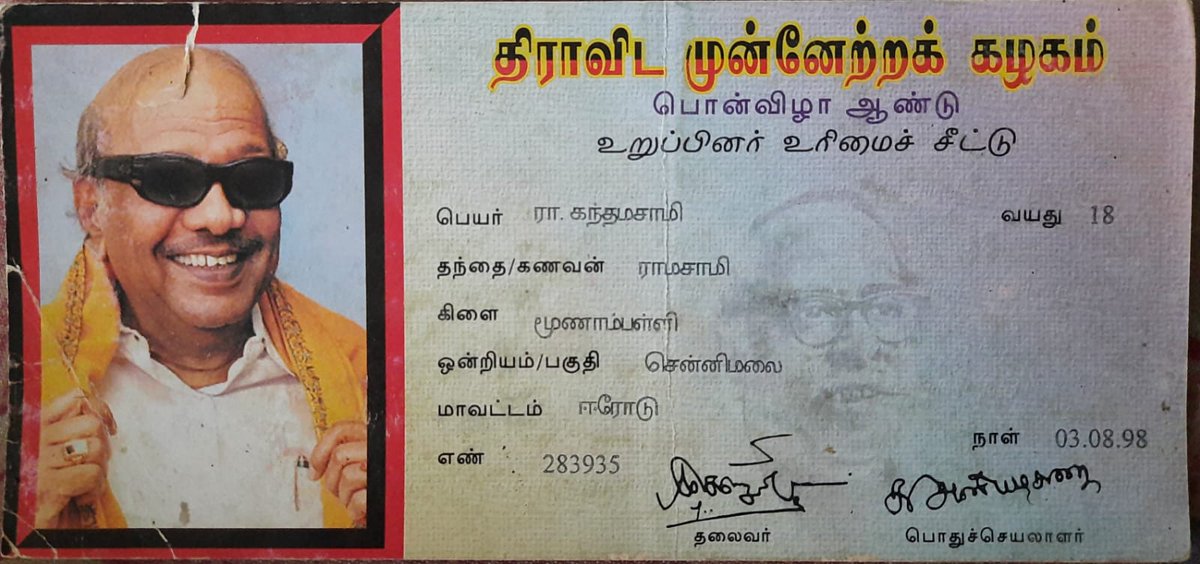 திராவிட முன்னேற்றக் கழகம்
பொன்விழா ஆண்டு
உறுப்பினர் உரிமைச் சீட்டு
பெயர் ரா. கந்தமசாமி வயது 18
தந்தை/கணவன் ராமசாமி
கிளை மூணாம்பள்ளி
ஒன்றியம்/பகுதி சென்னிமலை
மாவட்டம் ஈரோடு
எண் 283935 நாள் 03.08.98
தலைவர் பொதுச்செயலாளர்